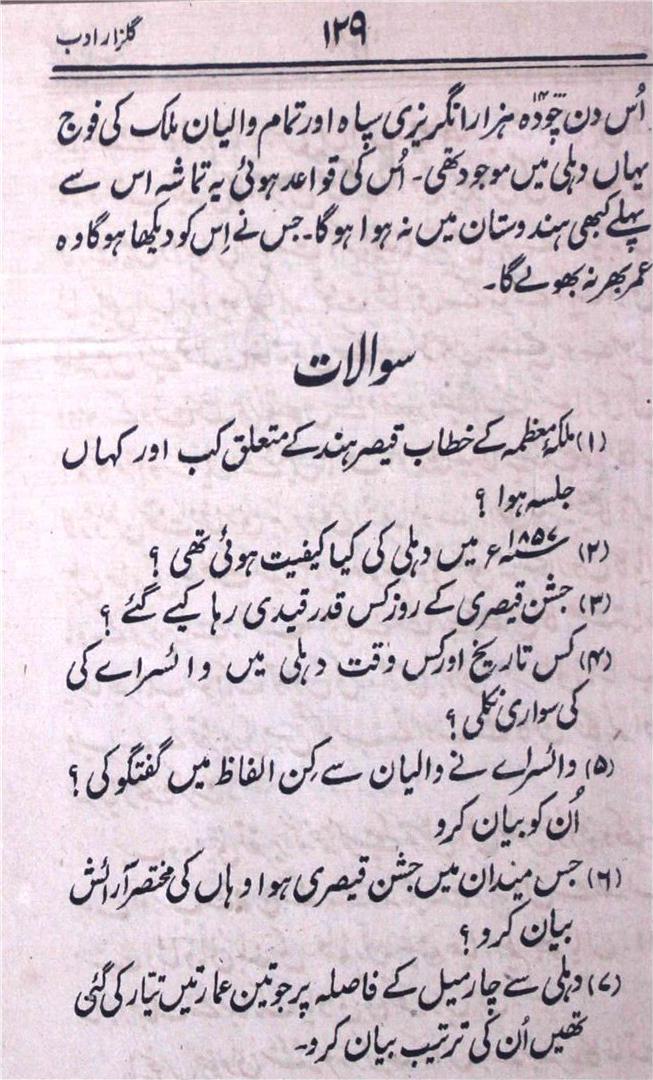 گلزار ادب
۱۲۹
اُس دن چودہ ۱۴ ہزار انگریزی سپاہ اور تمام والیان ملک کی فوج
یہاں دہلی میں موجود تھی۔ اُس کی قواعد ہوئی یہ تماشہ اس سے
پہلے کبھی ہندوستان میں نہ ہوا ہوگا۔ جس نے اِس کو دیکھا ہوگا وہ
عمر بھر نہ بھولے گا۔
سوالات
(۱) ملکۂ معظمہ کے خطاب قیصر ہند کے متعلق کب اور کہاں
جلسہ ہوا ؟
(۲) ۱۸۵۷ سنہ ء میں دہلی کی کیا کیفیت ہوئی تھی ؟
(۳) جشن قیصری کے روز کس قدر قیدی رہا کیے گئے ؟
(۴) کس تاریخ اور کس وقت دہلی میں وائسراے کی
کی سواری نکلی ؟
(۵) وائسراے نے والیان سے کِن الفاظ میں گفتگو کی ؟
اُن کو بیان کرو
(۶) جس میدان میں جشن قیصری ہوا وہاں کی مختصر آرائش
بیان کرو ؟
(۷) دہلی سے چار میل کے فاصلہ پر جو تین عمارتیں تیار کی گئی
تھیں اُن کی ترتیب بیان کرو۔